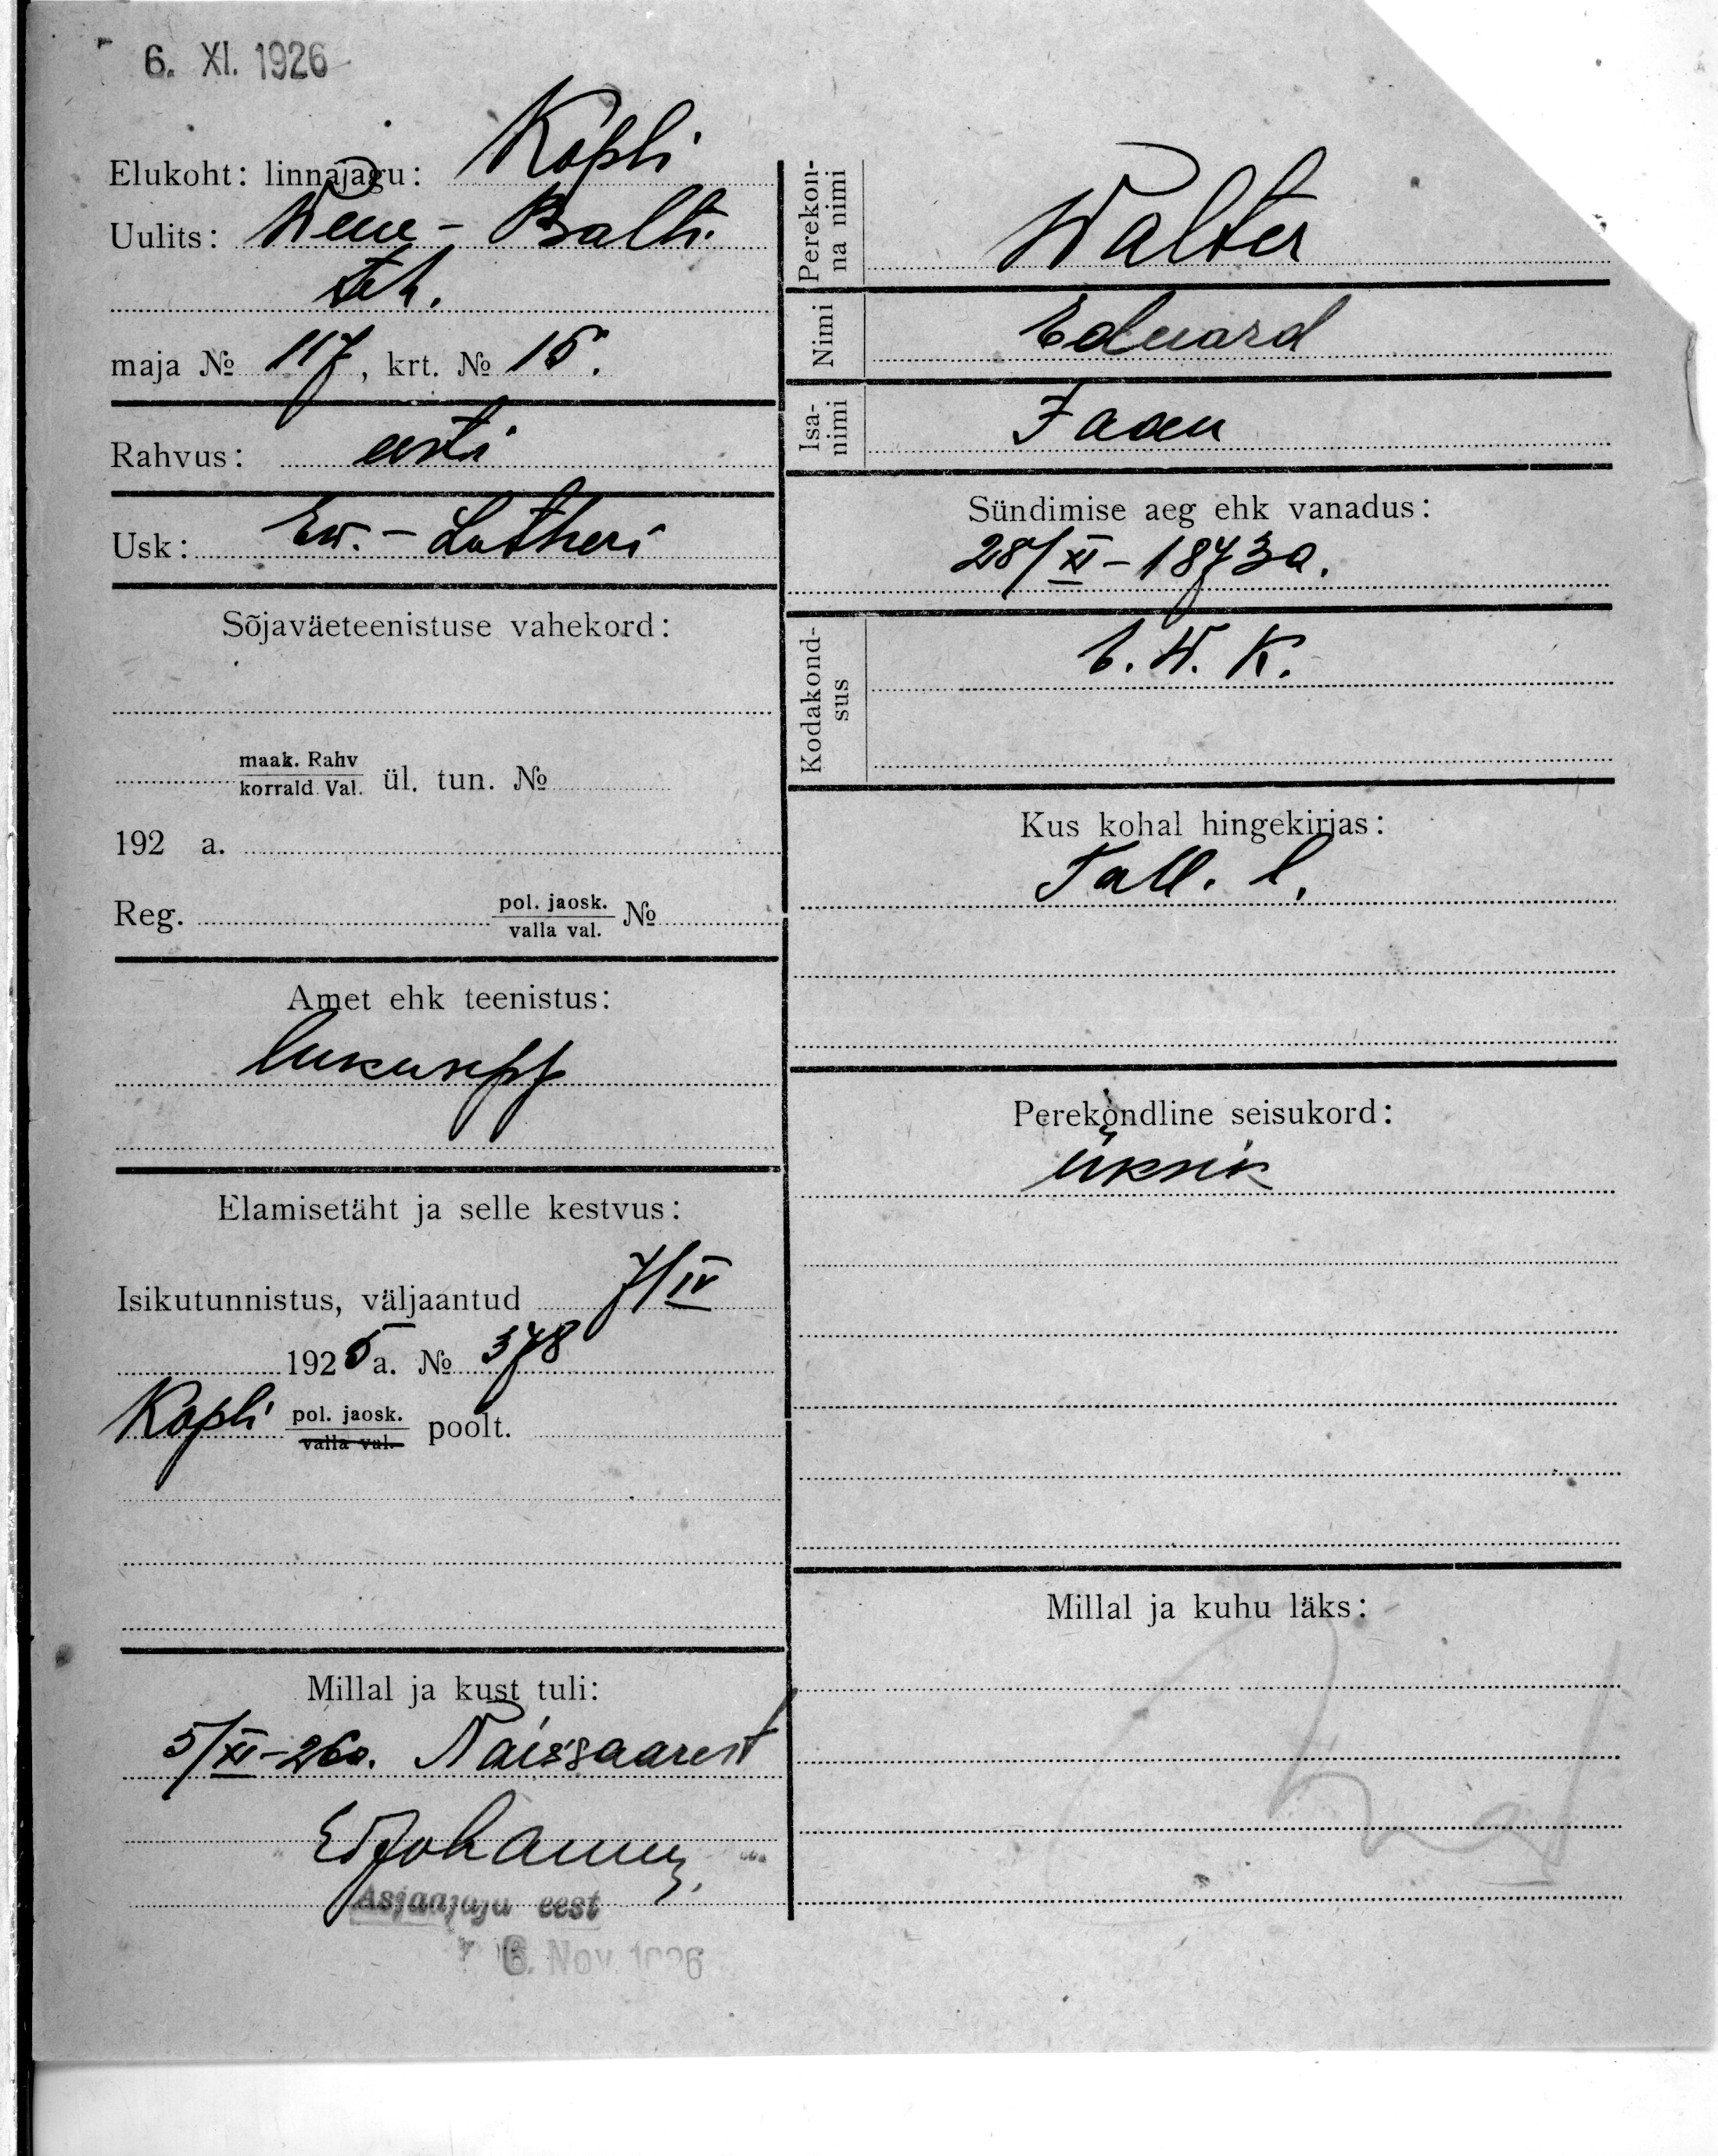 6. XI. 1926
Elukoht: linnajagu: Kopli
Uulits: Wene-Balti
teh.
maja № 117, krt. № 15.
Rahvus: eesti
Usk: Ew.-Lutheri
Sõjaväeteenistuse vahekord:
maak. Rahv
korrald. Val. ül. tun. №
192 a.
Reg. pol. jaosk. №
valla val.
Amet ehk teenistus:
lukusepp
Elamisetäht ja selle kestvus:
Isikutunnistus, väljaantud 7/IV
1925 a. № 378
Kopli pol. jaosk. poolt.
valla val.
Millal ja kust tuli:
5/XI-26a. Naissaarest
Asjaajaja eest
6. Nov. 1926
Perekon-
na nimi
Walter
Nimi
Eduard
Isa-
nimi
Jaan
Sündimise aeg ehk vanadus:
28/XI-1873a.
Kodakond-
sus
E. W. K.
Kus kohal hingekirjas:
Tall. l.
Perekondline seisukord:
üksik
Millal ja kuhu läks: